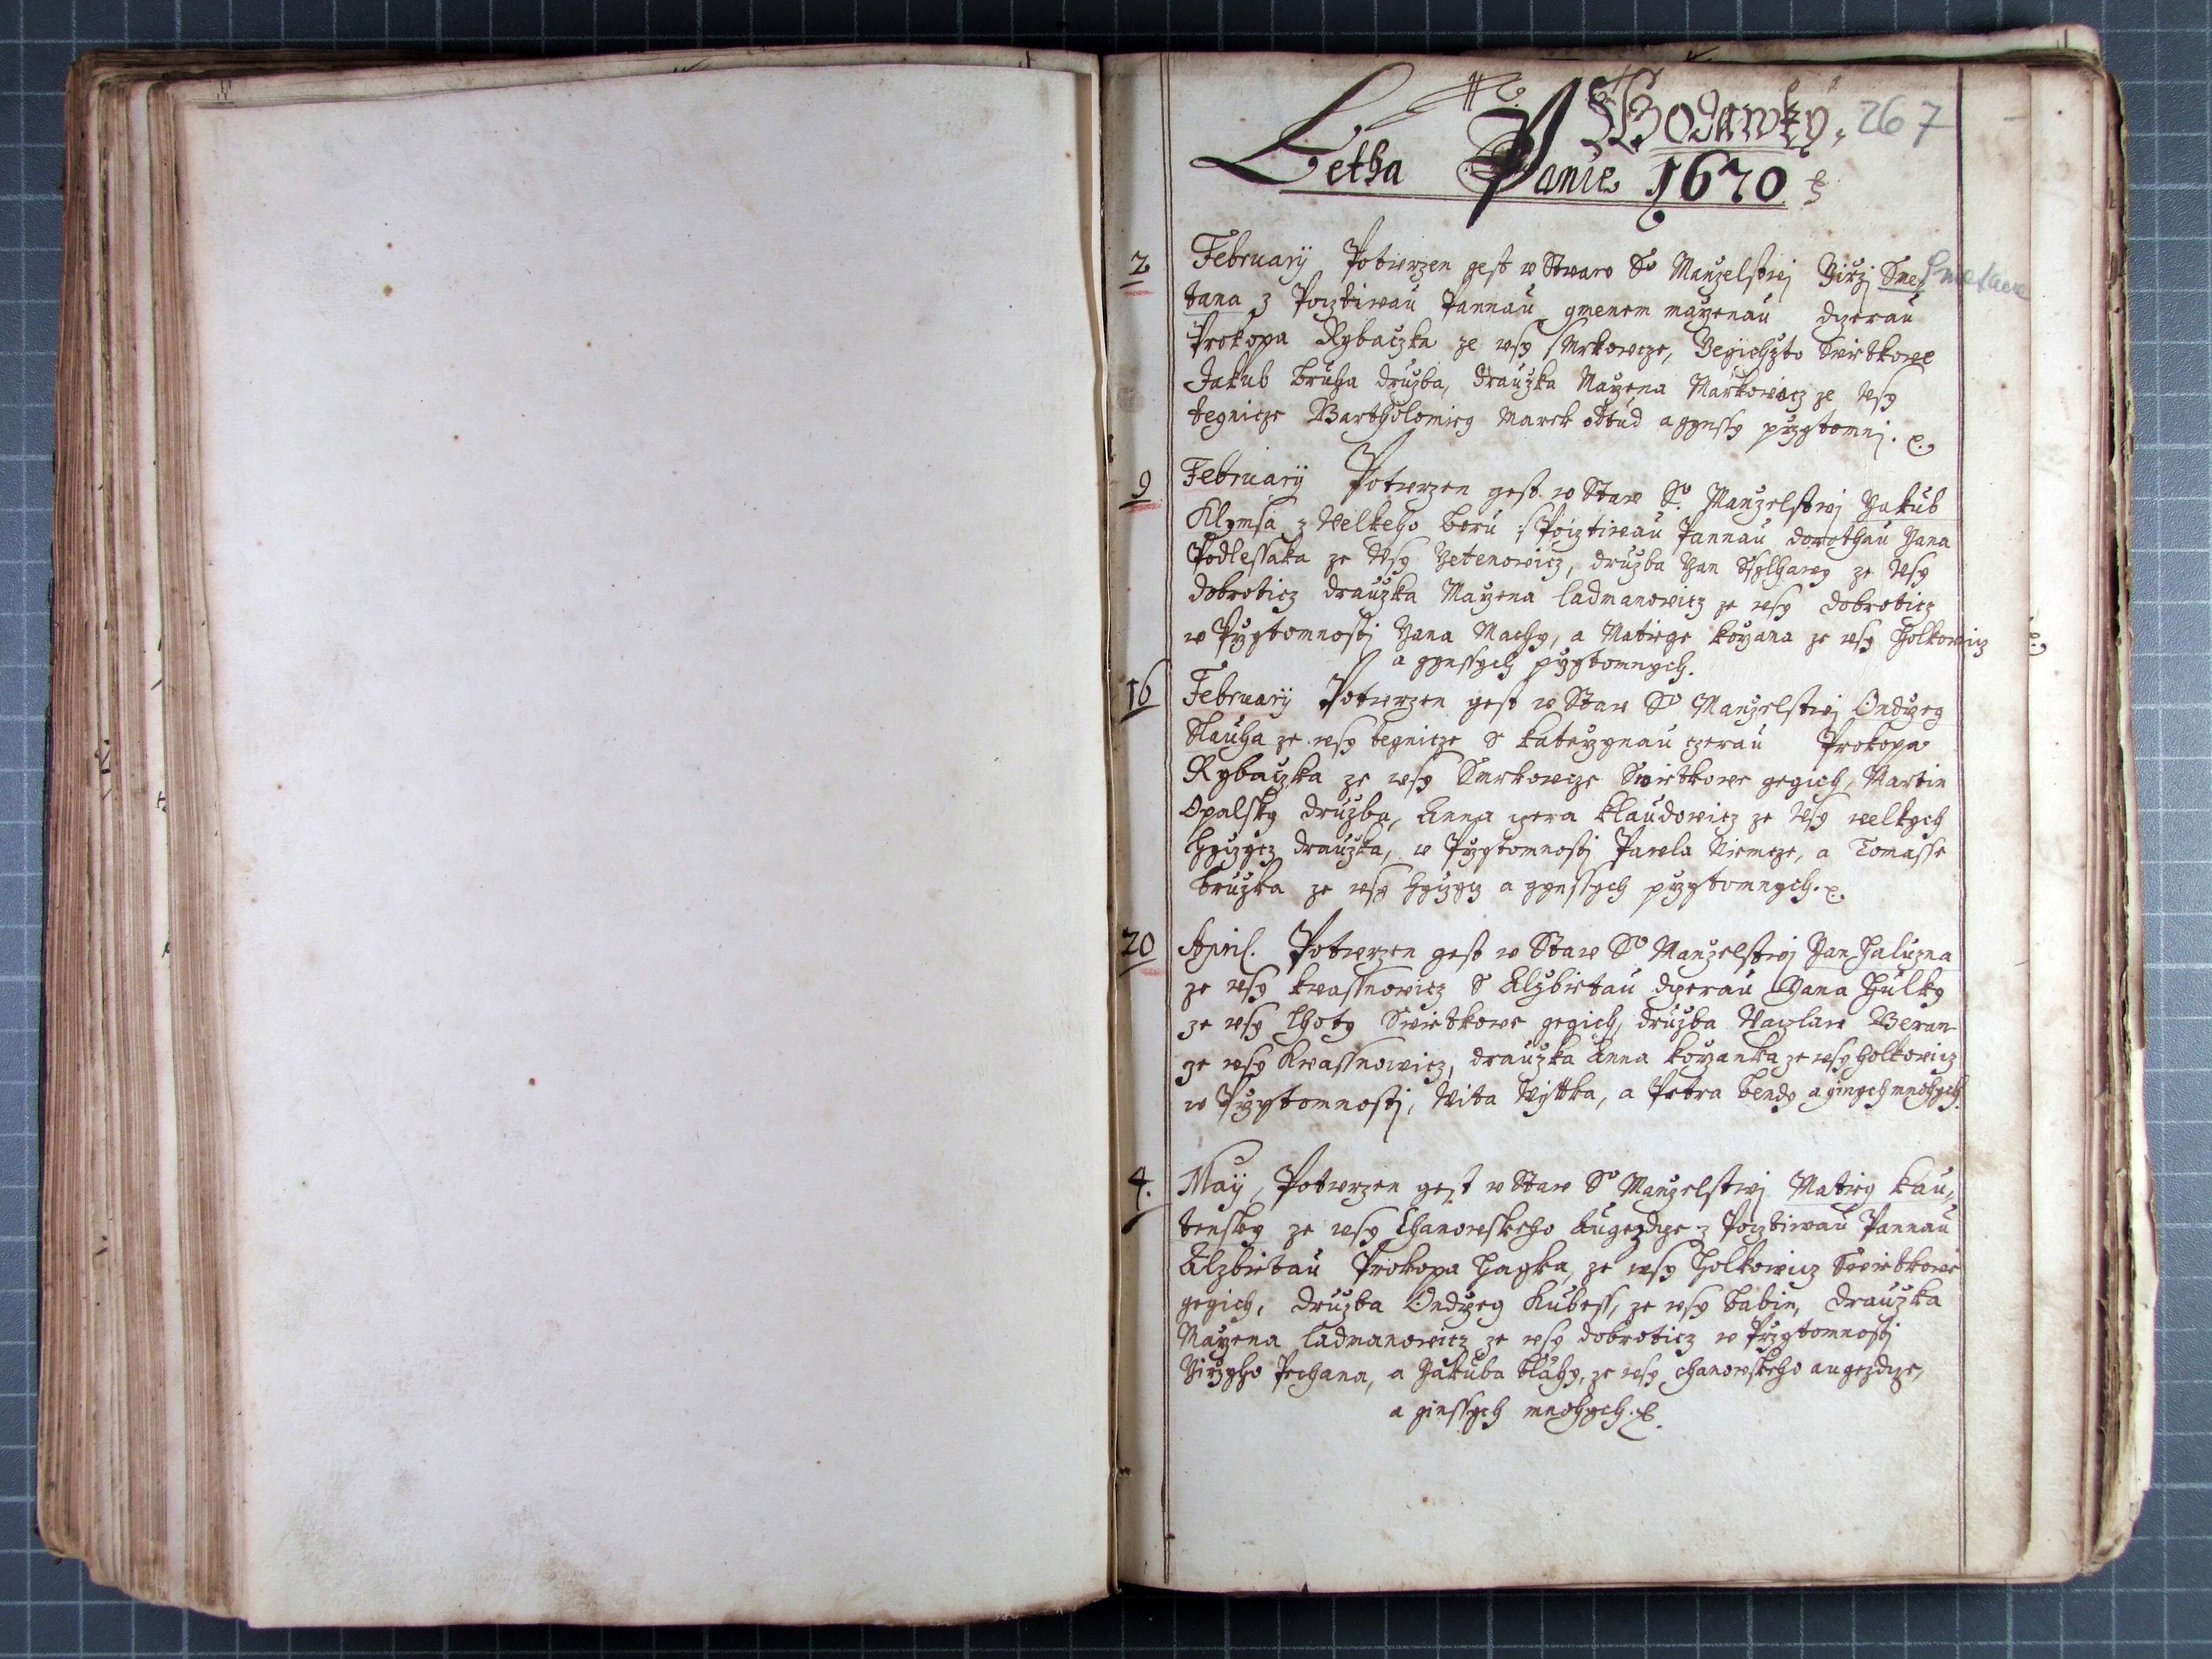 Wodawky. 267
Letha Panie 1670
2 February Potwrzen gest w Stwaw So Manzelstwj Girzj Sme/ Smetana
tana z Pocztiwau Pannau gmenem mayenau dczerau
Prokopa Rybaczka ze wsy Smrkowcze, Gegichzto Swietkowe
Jakub bruha druzba, drauzka Mayena Markowicz ze Wsy
tegnicze Bartholomieg Marek odtud a gynssy przytomnj.
9 February Potwrzen gest w Staw So. Manzelstwj Yakub
Klymsa z Welkeho boru s Pocztiwau Pannau dorothau Yana
Podlessaka ze Wsy Yetenowicz, druzba Yan ze Wsy
dobroticz drauzka Mayena ladmanowicz ze wsy dobroticz
w Przytomnostj Yana Machy, a Matiege kozana ze wsy holkowicz
a gynssych przytomnych.
16 February Potwrzen gest w Staw So Manzelstwj Ondrzeg
Slauha ze wsy tegnicze S katerzynau czerau Prokopa
Rybaczka ze wsy Smrkowcze Swietkowe gegich, Martin
Opalsky druzba, Anna czera klaudowicz ze Wsy welkych
hyczycz drauzka, w Przytomnostj Pawla Niemcze, a Tomasse
bruzka ze wsy hyczycz a gynssych przytomnych.
20 April. Potwrzen gest w Staw So Manzelstwj Yan haluzna
ze wsy kwassnowicz S Alzbietau dczerau Yana hulky
ze wsy lhoty Swietkowe gegich, druzba Waczlaw Beran
ze wsy Kwassnowicz, drauzka Anna kozanka ze wsy holkowicz
w Przytomnostj, Wita Wittka, a Petra bendy a ginych mnohych.
4. May, Potwrzen gest w Staw So Manzelstwj Matieg kau,
tensky ze wsy Chanowskeho Augezdcze z Pocztiwau Pannau
Alzbietau Prokopa hagka, ze wsy holkowicz Swietkowe
gegich, druzba Ondrzeg Kubess, ze wsy babin, drauzka
Mayena ladmanowicz ze wsy dobroticz w Przytomnostj
Girzyho Pechana, a Yakuba blahy, ze wsy chanowskeho augezdcze,
a ginssych mnohych.